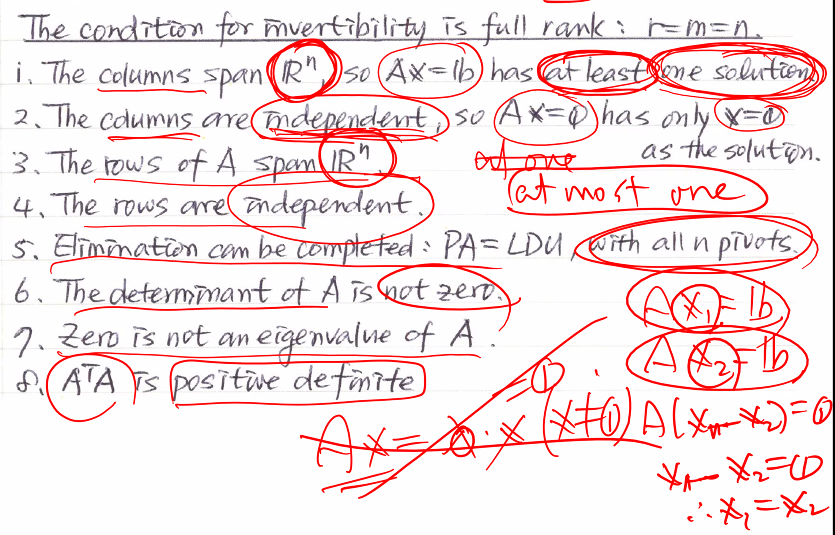 The condition for invertibility is full rank: r=m=n.
1. The columns span ℝⁿ, so Ax=b has at least one solution
2. The columns are independent, so Ax=0 has only x=0
as the solution.
3. The rows of A span ℝⁿ.
at most one
4. The rows are independent.
5. Elimination can be completed: PA=LDU, with all n pivots.
6. The determinant of A is not zero.
Ax₁=b
7. Zero is not an eigenvalue of A.
Ax₂=b
8. AᵀA is positive definite
Ax=0·x=0 (x≠0)
A(x₁-x₂)=0
x₁-x₂=0
∴x₁=x₂